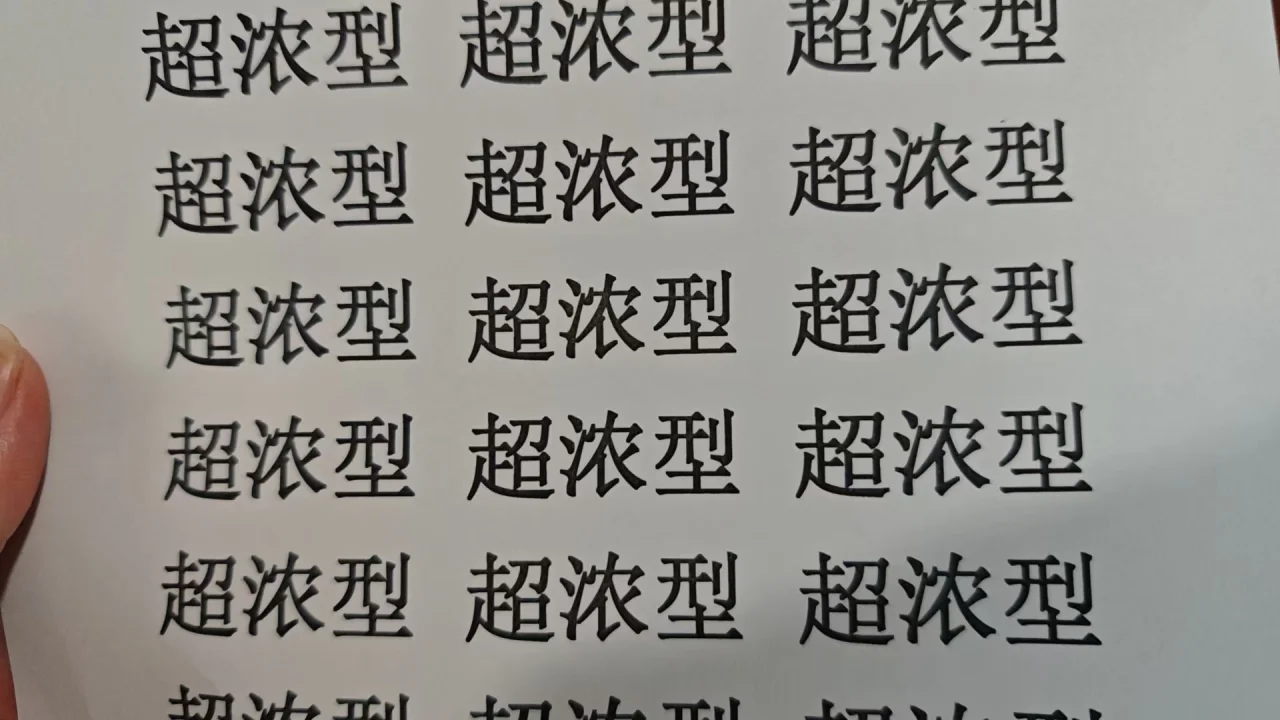 超浓型 超浓型 超浓型
超浓型 超浓型 超浓型
超浓型 超浓型 超浓型
超浓型 超浓型 超浓型
超浓型 超浓型 超浓型
超浓型 超浓型 超浓型